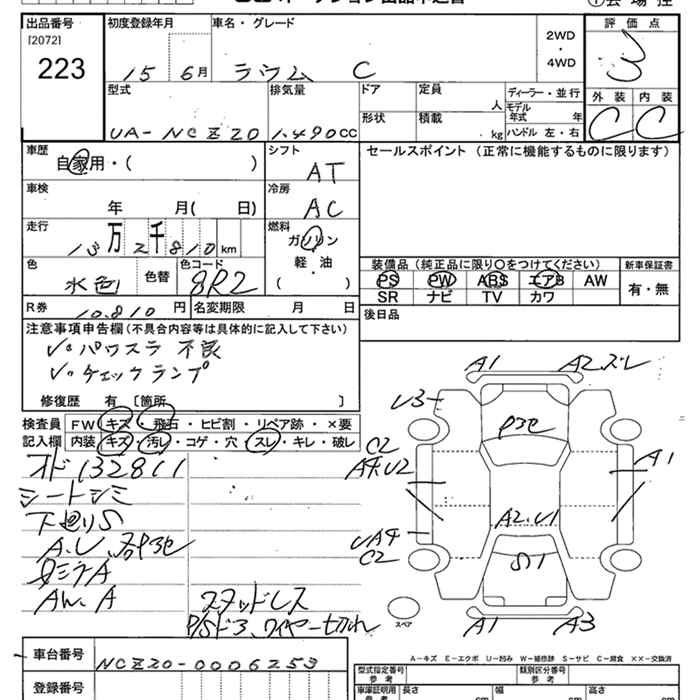 出品番号
[2072]
223
初度登録年月
15 6月
車名・グレード
ラウム C
2WD
・
4WD
評価点
3
外装 内装
C C
型式
UA-NCZ20
排気量
1.490cc
ドア
定員
人
ディーラー・並行
モデル年式 年式
形状
積載
kg
ハンドル 左・右
車歴
自家用・( )
シフト
AT
セールスポイント (正常に機能するものに限ります)
車検
年 月( 日)
冷房
AC
走行
13万2千810km
燃料
ガソリン
軽・油
( )
色
水色
色替
色コード
8R2
装備品 (純正品に限り〇をつけてください)
新車保証書
PS PW ABS エアB AW
SR ナビ TV カワ
有・無
R券
10.810円
名変期限 月 日
後日品
注意事項申告欄(不具合内容等は具体的に記入して下さい)
パワスラ 不良
チェックランプ
修復歴 有 [箇所 ]
検査員
記入欄
FW キズ・飛石・ヒビ割・リペア跡・×要
内装 キズ・汚レ・コゲ・穴・スレ・キレ・破レ
オド132811
シートシミ
下廻りS
A.U
AW.A
スタッドレス
P/Sドア、ワイヤー切れ
A1 A2.ズレ
U3
C2
A4.U2
A1
A2.U1
UA4
C2
S1
スペア
A1 A3
A-キズ E-エクボ U-凹み W-補修跡 S-サビ C-腐食 ××-交換済
車台番号
NCZ20-0006253
型式指定番号
参考
類別区分番号
参考
登録番号
車庫証明用
参考
長さ cm 幅 cm 高さ cm